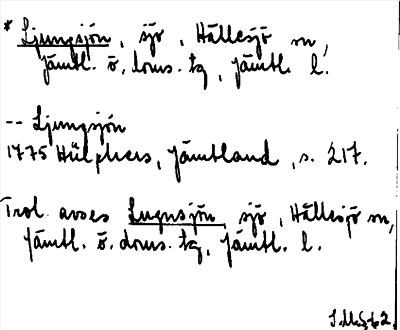 * Ljungsjön, sjö, Hällesjö sn,
Jämtl. ö. doms. tg, Jämtl. l.
-- Ljungsjön
1775 Hülphers, Jämtland, s. 217.
Trol. avses Lugnsjön sjö, Hällesjö sn,
Jämtl. ö. doms. tg, Jämtl. l.